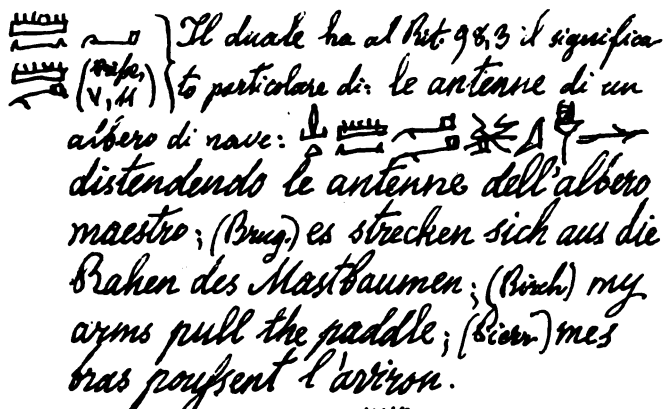 Il duale ha al Rit. 98,3 il significa
V, 11) to particolare di: le antenne di un
albero di nave:
distendendo le antenne dell'albero
maestro; (Brug.) es strecken sich aus die
Rahen des Mastbaumen; (Birch) my
arms pull the paddle; (Pierr.) mes
bras poussent l'aviron.